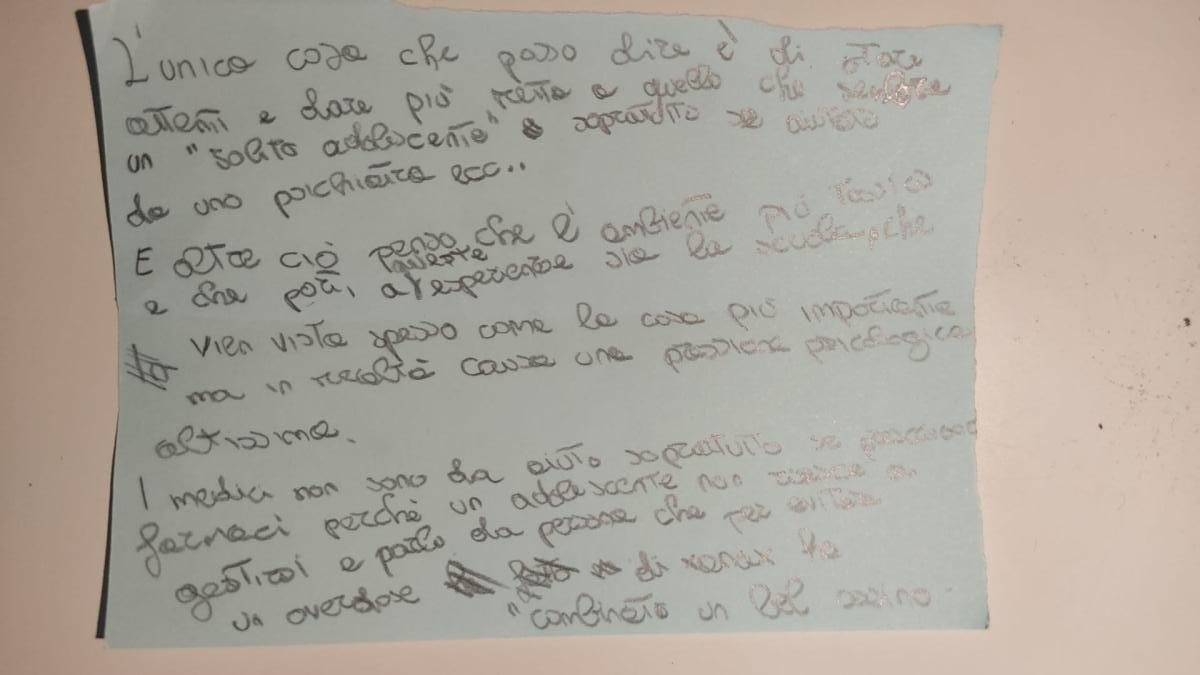 L'unica cosa che posso dire è di stare
attenti e dare più retta a quello che sembra
un "solito adolescente" e sopratutto se aiutato
da uno psichiatra ecc..
E oltre ciò penso che l'ambiente più tossico
e che porti a queste esperienze sia la scuola, che
vien vista spesso come la cosa più importante
ma in realtà causa una pressione psicologica
altissima.
I medici non sono da aiuto sopratutto se prescrivono
farmaci perché un adolescente non riesce a
gestirsi e parlo da persona che per evitare
un overdose di xanax ha
"combinato un bel casino